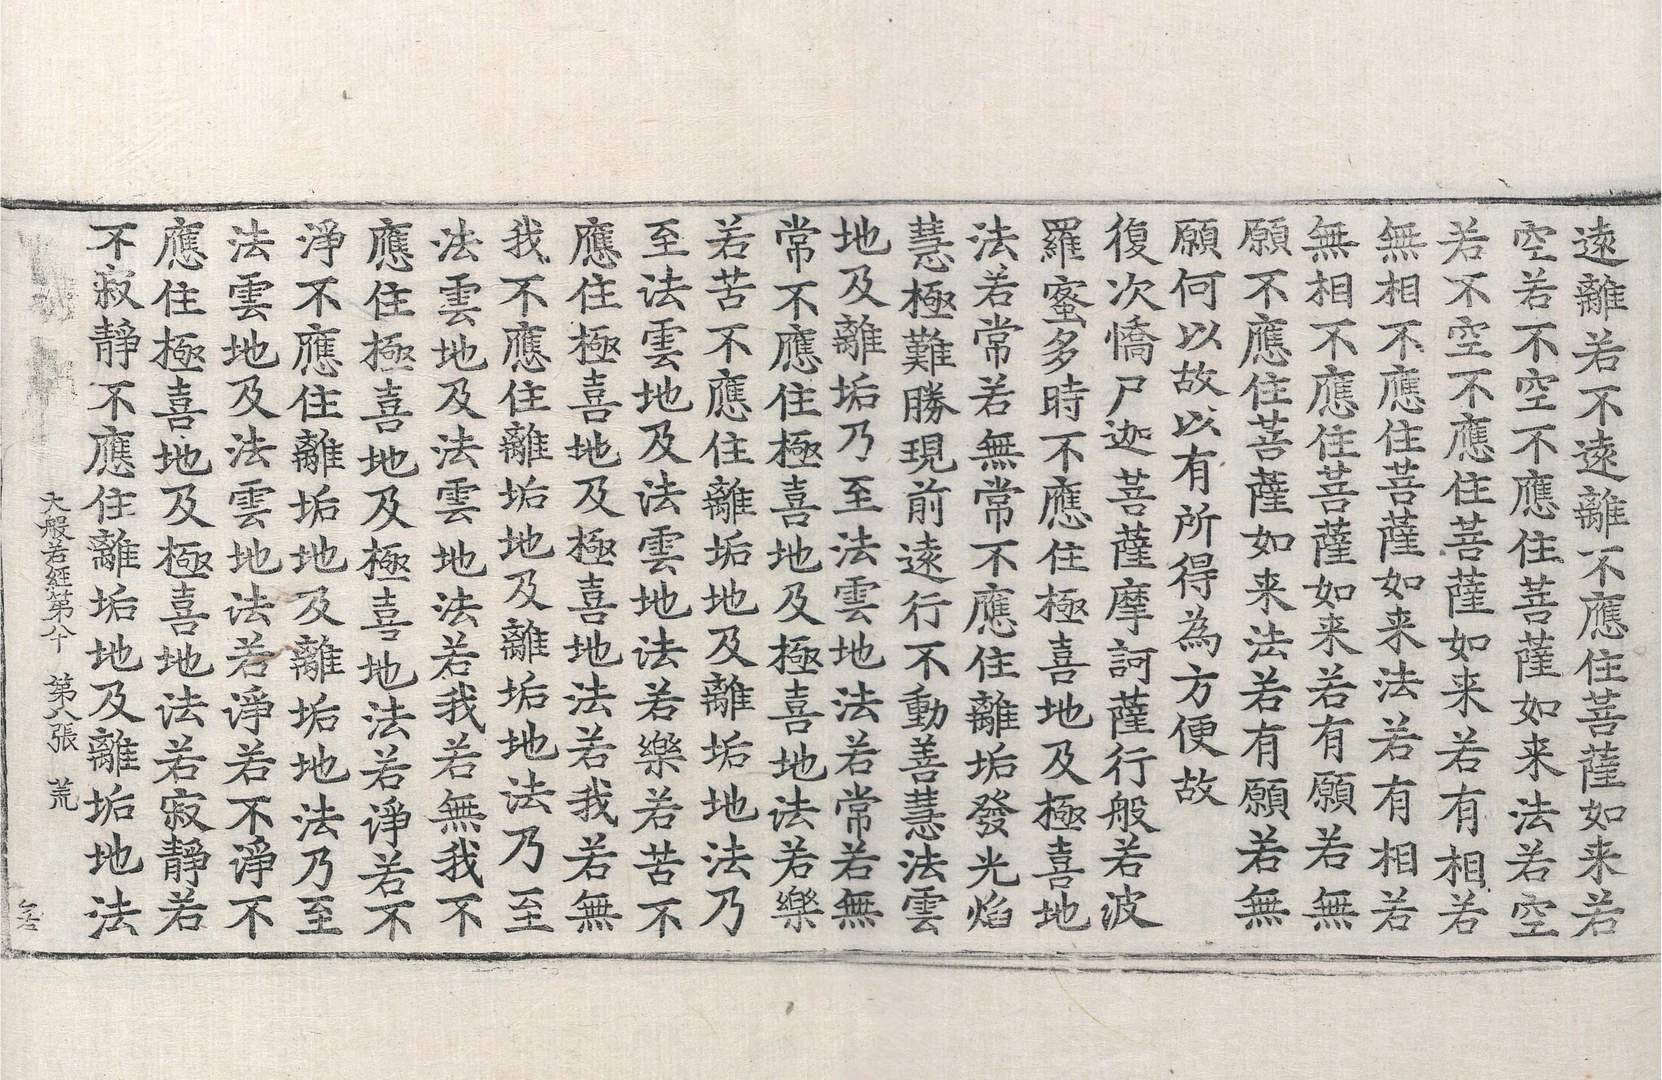 遠離若不遠離不應住菩薩如来若
空若不空不應住菩薩如来法若空
若不空不應住菩薩如来若有相若
無相不應住菩薩如来法若有相若
無相不應住菩薩如来若有願若無
願不應住菩薩如来法若有願若無
願何以故以有所得為方便故
復次憍尸迦菩薩摩訶薩行般若波
羅蜜多時不應住極喜地及極喜地
法若常若無常不應住離垢發光焰
慧極難勝現前遠行不動善慧法雲
地及離垢乃至法雲地法若常若無
常不應住極喜地及極喜地法若樂
若苦不應住離垢地及離垢地法乃
至法雲地及法雲地法若樂若苦不
應住極喜地及極喜地法若我若無
我不應住離垢地及離垢地法乃至
法雲地及法雲地法若我若無我不
應住極喜地及極喜地法若淨若不
淨不應住離垢地及離垢地法乃至
法雲地及法雲地法若淨若不淨不
應住極喜地及極喜地法若寂靜若
不寂靜不應住離垢地及離垢地法
大般若經第八十 第八張 荒